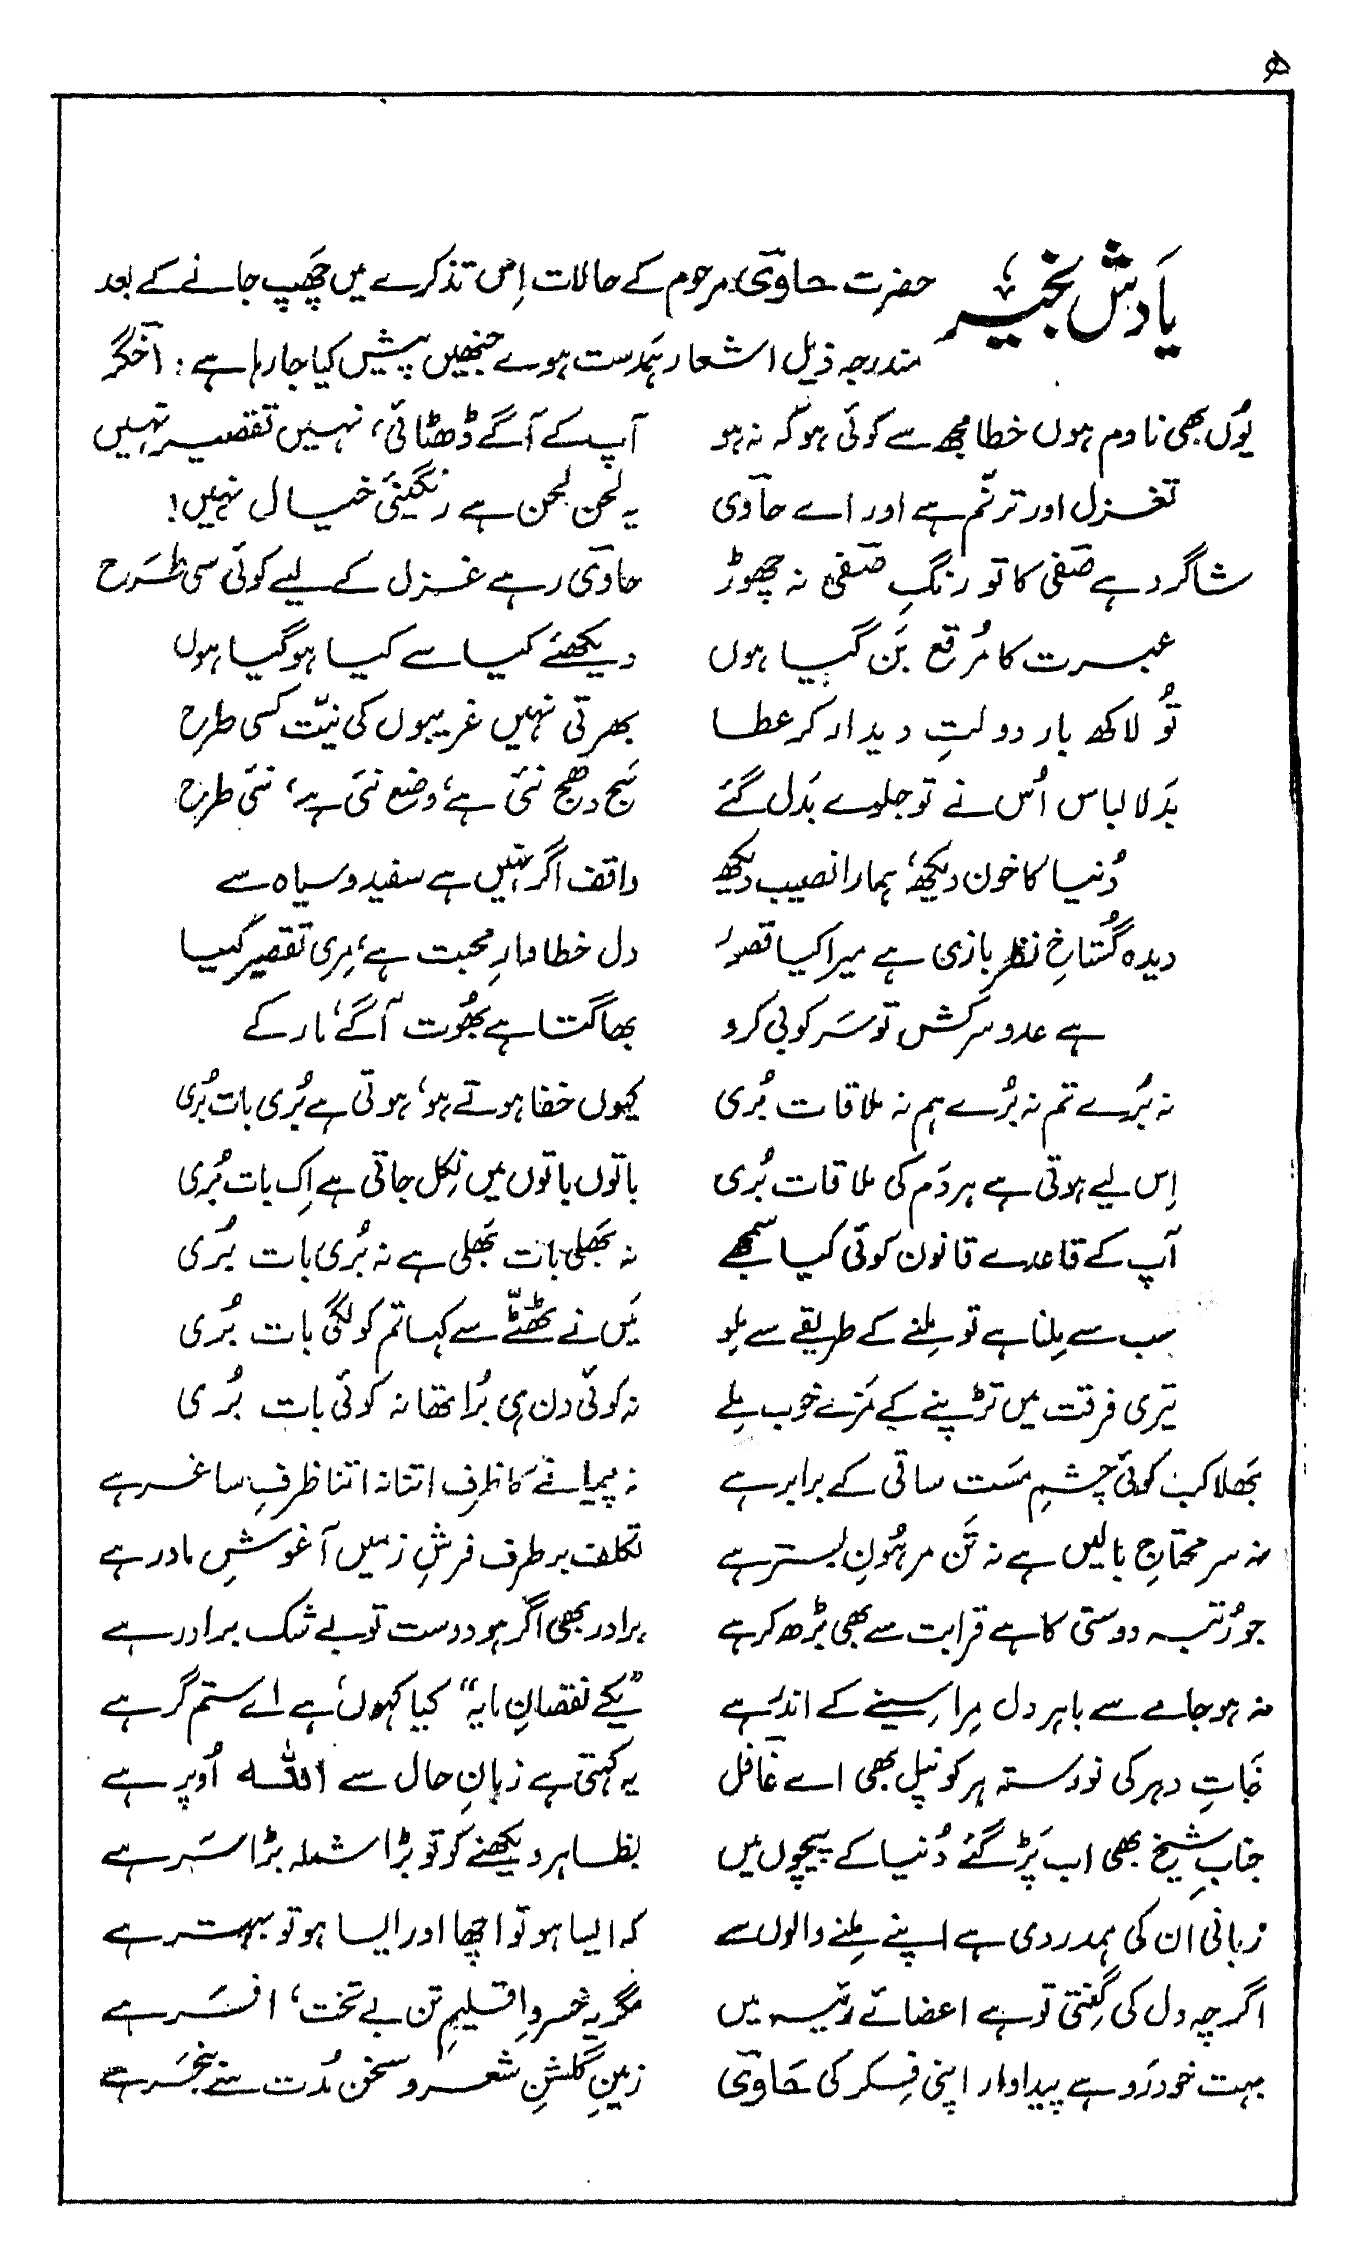 ھ
یادش بخیر؛ حضرت حاوی مرحوم کے حالات اِس تذکرے میں چھَپ جانے کے بعد
مندرجہ ذیل اشعار ہمدست ہوے جنھیں پیش کیا جارہا ہے : آخگر
یُوں بھی نادم ہوں خطا مجھ سے کوئی ہو کہ نہ ہو آپ کے آگے ڈھٹائی، نہیں تقصیر نہیں
تغزل اور ترنّم ہے اور اے حاوی یہ لحن لحن ہے رنگینئ خیال نہیں!
شاگرد ہے صفی کا تو رنگِ صفی نہ چھوڑ حاوی رہے غزل کے لیے کوئی سی طَرَح
عبرت کا مُرقع بَن گیا ہوں دیکھئے کیا سے کیا ہوگیا ہوں
تُو لاکھ بار دولتِ دیدار کر عطا بھرتی نہیں غریبوں کی نیّت کسی طرح
بَدلا لباس اُس نے تو جلوے بَدل گئے سَج دھج نئی ہے، وضع نئی ہے، نئی طرح
دُنیا کا خون دیکھ، ہمارا نصیب دیکھ واقف اگر نہیں ہے سفید و سیاہ سے
دیدہ گُستاخِ نظر بازی ہے میرا کیا قصور دل خطا وارِ محبت ہے، مِری تقصیر کیا
ہے عدو سرکش تو سَر کوبی کرو بھاگتا ہے بھُوت آگے، مار کے
نہ بُرے تم نہ بُرے ہم نہ ملاقات بُری کیوں خفا ہوتے ہو، ہوتی ہے بُری بات بُری
اِس لیے ہوتی ہے ہر دَم کی ملاقات بُری باتوں باتوں میں نِکل جاتی ہے اِک بات بُری
آپ کے قاعدے قانون کوئی کیا سمجھے نہ بھَلی بات بھَلی ہے نہ بُری بات بُری
سب سے مِلنا ہے تو مِلنے کے طریقے سے مِلو مَیں نے ٹھٹّے سے کہا تم کو لگی بات بُری
تیری فرقت میں تڑپنے کے مَزے خوب مِلے نہ کوئی دن ہی بُرا تھا نہ کوئی بات بُری
بھَلا کب کوئی چشمِ مَست ساقی کے برابر ہے نہ پیمانے کا ظرف اتنا نہ اتنا ظرفِ ساغر ہے
نہ سر محتاجِ بالیں ہے نہ تَن مرہُونِ بستر ہے تکلف بر طرف فرشِ زمیں آغوشِ مادر ہے
جو رُتبہ دوستی کا ہے قرابت سے بھی بڑھ کر ہے برادر بھی اگر ہو دوست تو بے شک برادر ہے
نہ ہو جامے سے باہر دل مِرا سِینے کے اندر ہے ”یکے نقصانِ مایہ“ کیا کہوں، ہے اے ستم گر ہے
نباتِ دہر کی نورستہ ہر کونپل بھی اے غافل یہ کہتی ہے زبانِ حال سے اللہ اُوپر ہے
جنابِ شیخ بھی اب پَڑ گئے دُنیا کے پیچوں میں بظاہر دیکھنے کو تو بڑا شملہ بڑا سَر ہے
زبانی ان کی ہمدردی ہے اپنے مِلنے والوں سے کہ ایسا ہو تو اچھا اور ایسا ہو تو بہتر ہے
اگرچہ دل کی گِنتی تو ہے اعضائے رئیسہ میں مگر یہ خسروِ اقلیمِ تن بے تخت، افسَر ہے
بہت خودرَو ہے پیداوار اپنی فِکر کی حَاوی زمینِ گلشنِ شعر و سخن مُدت سے بنجَر ہے